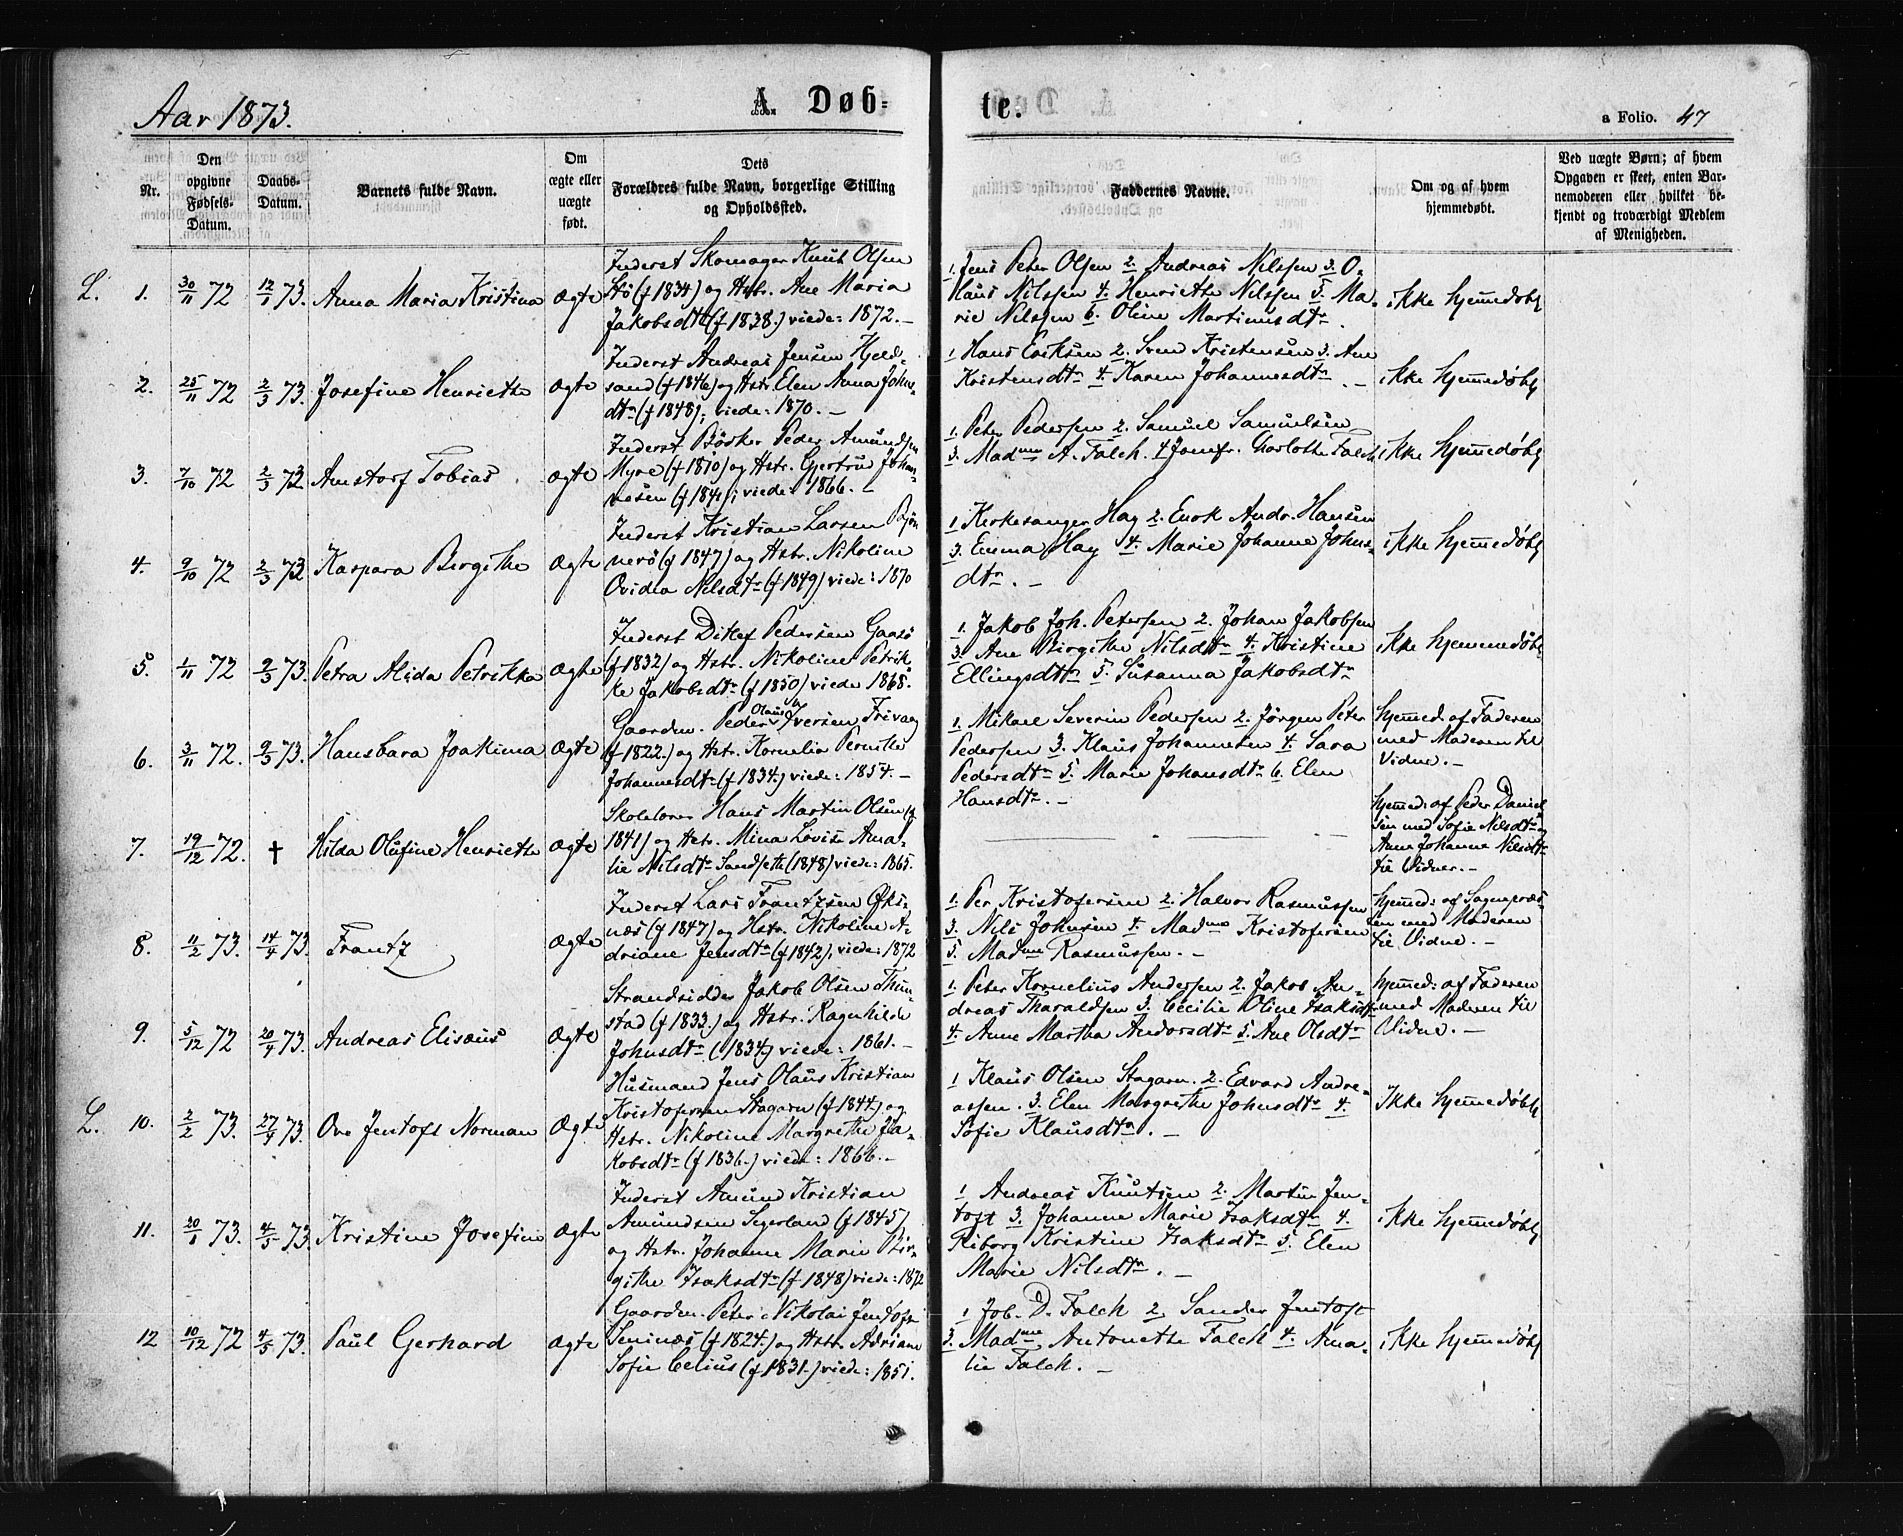 Aar 1873.
A. Døb=
te.
a Folio. 47
Nr.
Den opgivne Fødsels-Datum.
Daabs-Datum.
Barnets fulde Navn.
Om ægte eller uægte født.
Dets Forældres fulde Navn, borgerlige Stilling og Opholdssted.
Faddernes Navne.
Om og af hvem hjemmedøbt.
Ved uægte Børn; af hvem Opgaven er skeet, enten Barnemoderen eller hvilket bekjendt og troværdigt Medlem af Menigheden.
L. 1. 30/11 72 12/1 73. Anna Maria Kristina Ægte
Inderst Skomager Knut Olsen
Stö (f 1834) og Hstr. Ane Maria
Jakobsdtr (f 1838.) viede: 1872. —
1. Jens Peter Olsen 2. Andreas Nilssen 3. O-
laus Nilssen 4. Henriette Nilssen 5. Ma-
rie Nilssen 6. Oline Martinusdtr.
ikke hjemmedøbt
2. 25/11 72 2/3 73. Josefine Henriette Ægte
Inderst Andreas Jensen Hjeld-
sand (f 1846) og Hstr. Elen Anna Johns-
dtr (f 1848); viede: 1870. —
1 Hans Eriksen 2. Svend Kristensen 3. Ane
Kristensdtr 4. Karen Johannesdtr. —
ikke hjemmedøbt
3. 7/10 72 2/3 73 Amstorf Tobias Ægte
Inderst Bödker Peder Amundsen
Myre (f 1810) og Hstr. Gjertru Johan-
nesen (f 1841; viede: 1866. —
1. Peter Pedersen 2. Samuel Samuelsen
3. Madme A. Falch. 4 Jomfr. Charlotte Falch
ikke hjemmedøbt
4. 9/10 72 2/3 73 Kaspara Birgithe Ægte
Inderst Kristian Larsen Björ
nerö (f 1847) og Hstr. Nikoline
Ovidea Nilsdtr (f 1849) viede: 1870
1 Kirkesanger Hay 2. Enok Andr. Hansen
3. Emma Hay 4. Marie Johanne Johns-
dtr. —
ikke hjemmedøbt
5. 1/11 72 9/3 73. Petra Alida Petrikka Ægte
Inderst Ditlef Pedersen Gaasö
(f 1832) og Hstr. Nikoline Petrik-
ke Jakobsdtr (f 1850) viede 1868.
1. Jakob Joh. Petersen 2. Johan Jakobsen
3. Ane Birgithe Nilsdtr 4. Kristine
Ellingsdtr 5. Susanna Jakobsdtr
ikke hjemmedøbt
6. 3/11 72. 9/3 73. Hansbara Joakima Ægte
Gaardm. Peder Olaus Iversen Frivaag
(f 1822.) og Hst. Kornelia Pernille
Johannesdtr (f 1834.) viede: 1854. —
1. Mikael Severin Pedersen 2. Jörgen Peter
Pedersen 3. Klaus Johannesen 4. Sara
Pedersdtr 5. Marie Johansdtr 6. Elen
Hansdtr. —
hjemmed: af Faderen
med Moderen til
Vidne. —
7. 19/12 72. † Hilda Olufine Henriette Ægte
Skolelærer Hans Martin Olsen (f
1841) og Hstr. Mina Lovise Ama-
lie Nilsdtr Sandsett (1848) viede: 1865.
hjemmed: af Peder Daniel
sen med Sofie Nilsdtr og
Anne Johanna Nilsdtr
til Vidner. —
8. 11/2 73. 14/4 73. Frantz Ægte
Inderst Lars Frantzsen Öks-
næs (f 1847) og Hstr. Nikoline A-
driane Jensdtr (f 1842), viede: 1872
1. Per Kristofersen 2. Halvor Rasmussen
3. Nils Johnsen 4. Madme Kristofersen
5. Madme Rasmussen. —
hjemmed: af Sognepræs
en med Moderen
til Vidne. —
9. 5/12 72 20/4 73. Andreas Elisæus Ægte
Strandsidder Jakob Olsen Thun-
stad (f 1833.) og Hstr. Ragnhilde
Johnsdtr. (1834) viede: 1861. —
1. Peter Kornelius Andersen 2. Jakob An-
dreas Tharaldsen 3. Cecilie Oline Isaksdtr
4. Anne Martha Andorsdtr 5. Ane Olsdtr
hjemmed: af Faderen
med Moderen til
Vidne. —
L. 10. 2/2 73. 27/4 73. Ove Jentoft Norman Ægte
Husmand Jens Olaus Kristian
Kristofersen Stagarn (f 1844.) og
Hstr. Nikoline Margrethe Ja-
kobsdtr (f 1836.) viede: 1866. —
1 Klaus Olsen Stagarn. 2. Edvard Andre-
assen. 3. Elen Margrethe Johnsdtr 4.
Sofie Klausdtr. —
Ikke hjemmedøbt
11. 20/1 73. 4/5 73. Kristine Josefine Ægte
Inderst Amund Kristian
Amundsen Segerland (f 1845)
og Hstr. Johanne Marie Bir-
githe Isaksdtr (f 1848) viede: 1872
1 Andreas Knutsen 2. Martin Jen-
toft 3. Johanne Marie Isaksdtr 4.
Riborg Kristine Isaksdtr 5. Elen
Marie Nilsdtr. —
ikke hjemmedøbt
12 10/12 72 4/5 73. Paul Gerhard Ægte
Gaardm. Peter Nikolai Jentoft
Seninæs (f 1824.) og Hstr. Adriane
Sofie Celius (f 1831.) viede: 1851.
1 Job. D. Falch 2. Sander Jentoft
3. Madme Antonette Falch 4. Ama-
lie Falch. —
ikke hjemmedøbt